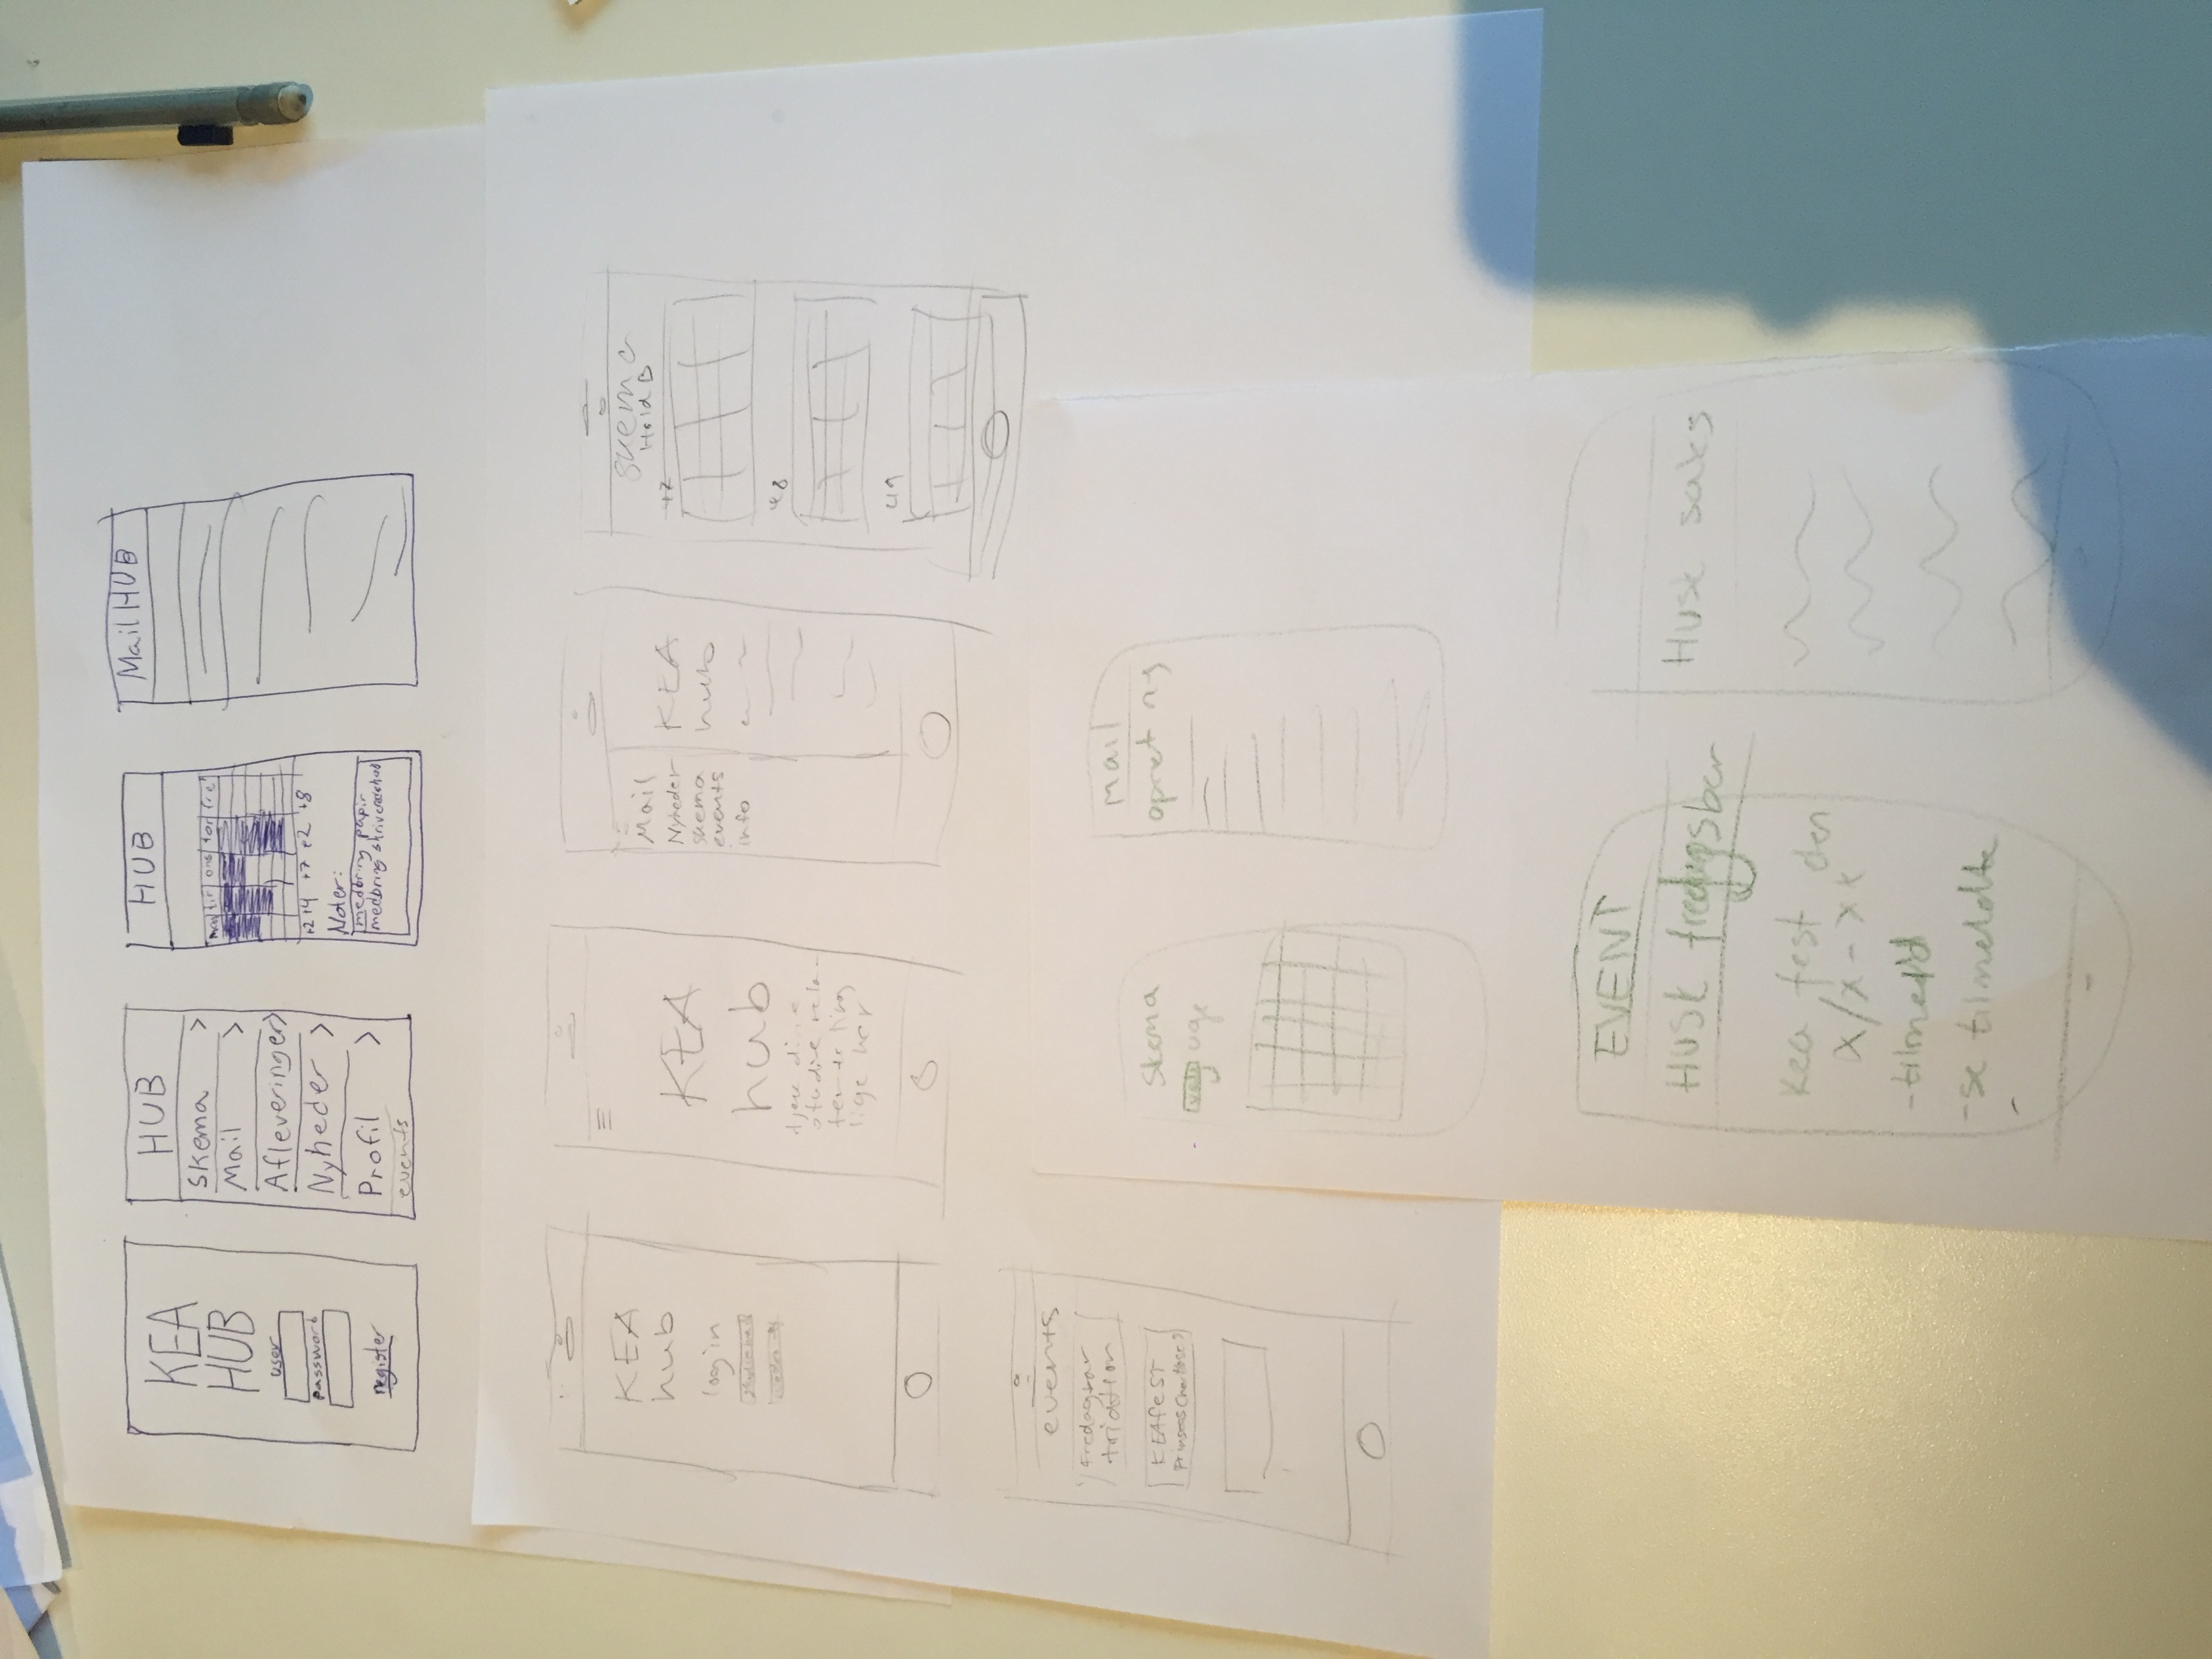 KEA
HUB
user
password
register
HUB
Skema >
Mail >
Afleveringer >
Nyheder >
Profil >
events
HUB
man tir ons tor fre
+2 +4 +7 +2 +8
Noter:
medbring papir
medbring
Mail HUB
KEA
hub
login
KEA
hub
studie rela-
ting
lige her
Mail
Nyheder
skema
events
info
KEA
hub
skema
Hold B
48
49
events
Fredagbar
KEAfeST
Skema
vælg uge
mail
opret ny
EVENT
Husk fredagsbar
Kea fest den
x/x - xx
- tilmeld
- se tilmeldte
-
Husk saks